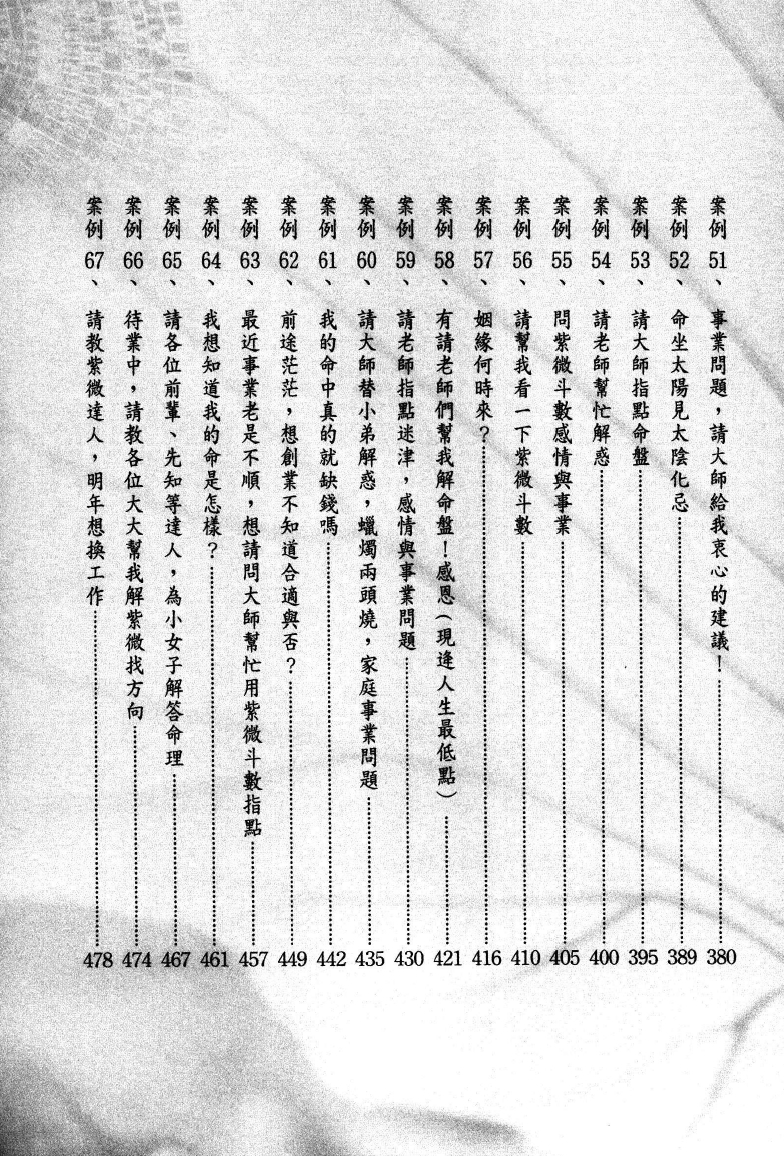 案例51、事業問題，請大師給我衷心的建議！……380
案例52、命坐太陽見太陰化忌……389
案例53、請大師指點命盤……395
案例54、請老師幫忙解惑……400
案例55、問紫微斗數感情與事業……405
案例56、請幫我看一下紫微斗數……410
案例57、姻緣何時來？……416
案例58、有請老師們幫我解命盤！感恩（現逢人生最低點）……421
案例59、請老師指點迷津，感情與事業問題……430
案例60、請大師替小弟解惑，蠟燭兩頭燒，家庭事業問題……435
案例61、我的命中真的就缺錢嗎……442
案例62、前途茫茫，想創業不知道合適與否？……449
案例63、最近事業老是不順，想請問大師幫忙用紫微斗數指點……457
案例64、我想知道我的命是怎樣？……461
案例65、請各位前輩、先知等達人，為小女子解答命理……467
案例66、待業中，請教各位大大幫我解紫微找方向……474
案例67、請教紫微達人，明年想換工作……478